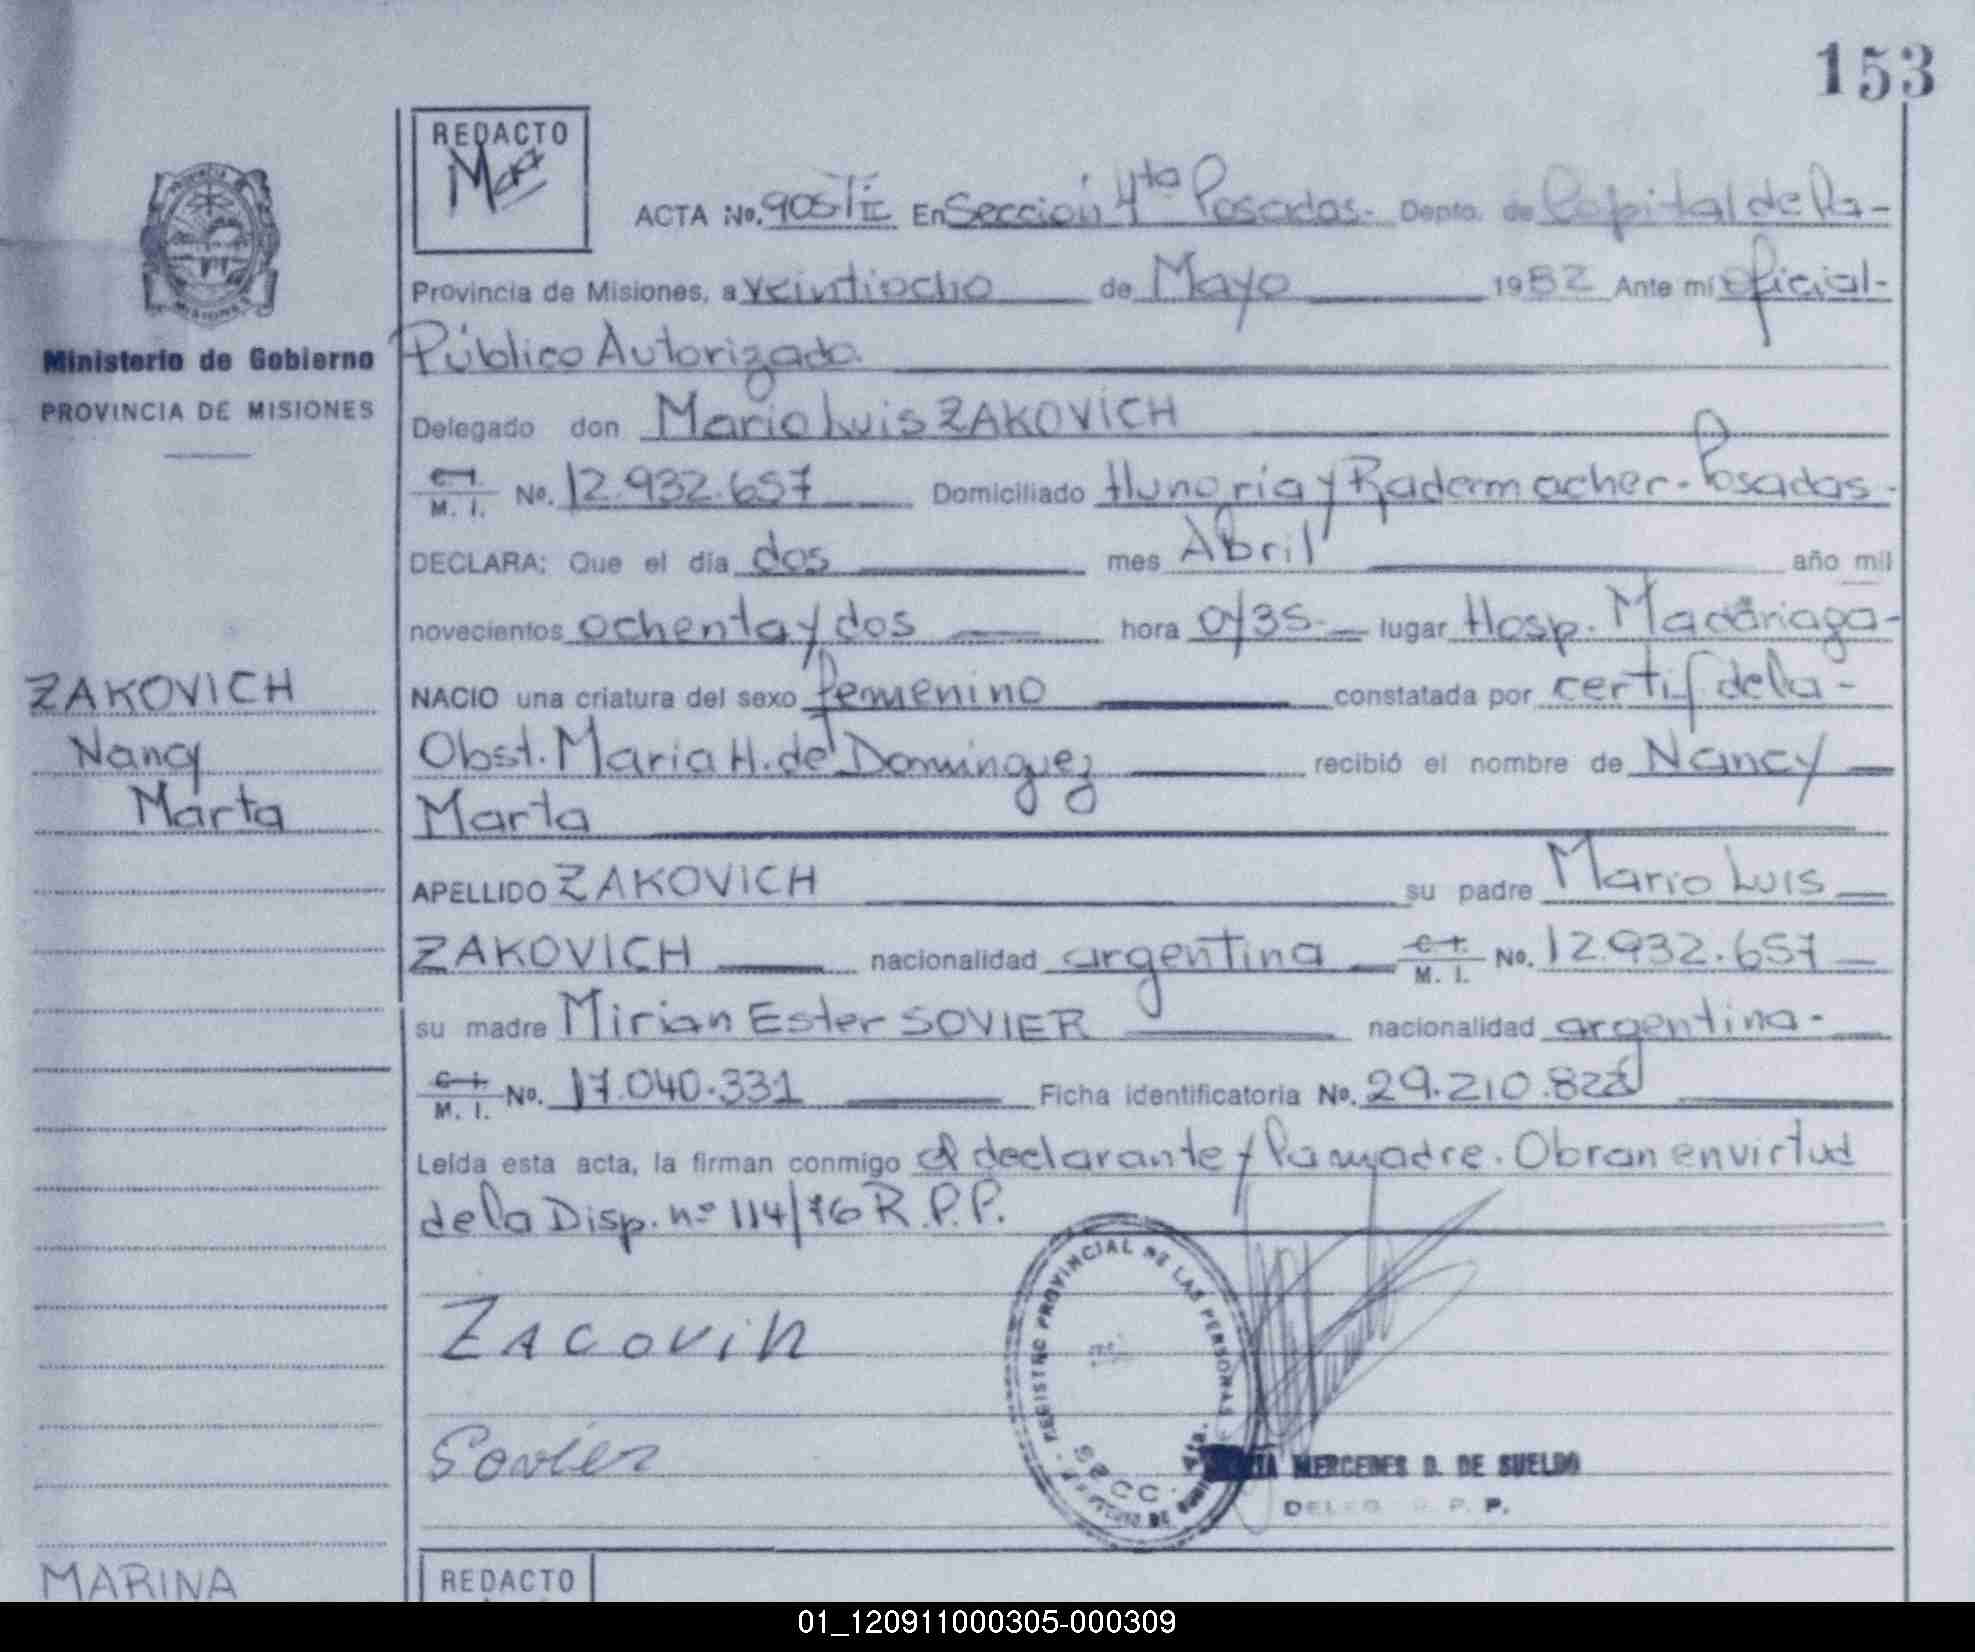 153
REDACTO
ACTA No. 905/II En Sección 4ta Posadas. Depto. de Capital de la-
Provincia de Misiones, a veintiocho de Mayo 1982 Ante mí oficial-
Ministerio de Gobierno
Público Autorizado.
PROVINCIA DE MISIONES
Delegado don Mario Luis ZAKOVICH
C. I. M. I. No. 12.932.657 Domiciliado Hungría y Radermacher - Posadas.
DECLARA: Que el día dos mes Abril año mil
novecientos ochenta y dos hora 0/35 lugar Hosp. Madariaga-
ZAKOVICH
NACIO una criatura del sexo femenino constatada por certif de la-
Nancy
Obst. Maria H. de Dominguez recibió el nombre de Nancy
Marta
Marta
APELLIDO ZAKOVICH su padre Mario Luis
ZAKOVICH nacionalidad argentina C. I. M. I. No. 12.932.657
su madre Mirian Ester SOVIER nacionalidad argentina-
C. I. M. I. No. 17.040.331 Ficha identificatoria No. 29.210.828
Leída esta acta, la firman conmigo el declarante y la madre. Obran en virtud
de la Disp. nº 114/76 R.P.P.
REGISTRO PROVINCIAL DE LAS PERSONAS
SECC. 4ta.
ZACOVIH
Sovier
MERCEDES D. DE SUELDO
DELEG. R. P. P.
MARINA
REDACTO
01_120911000305-000309